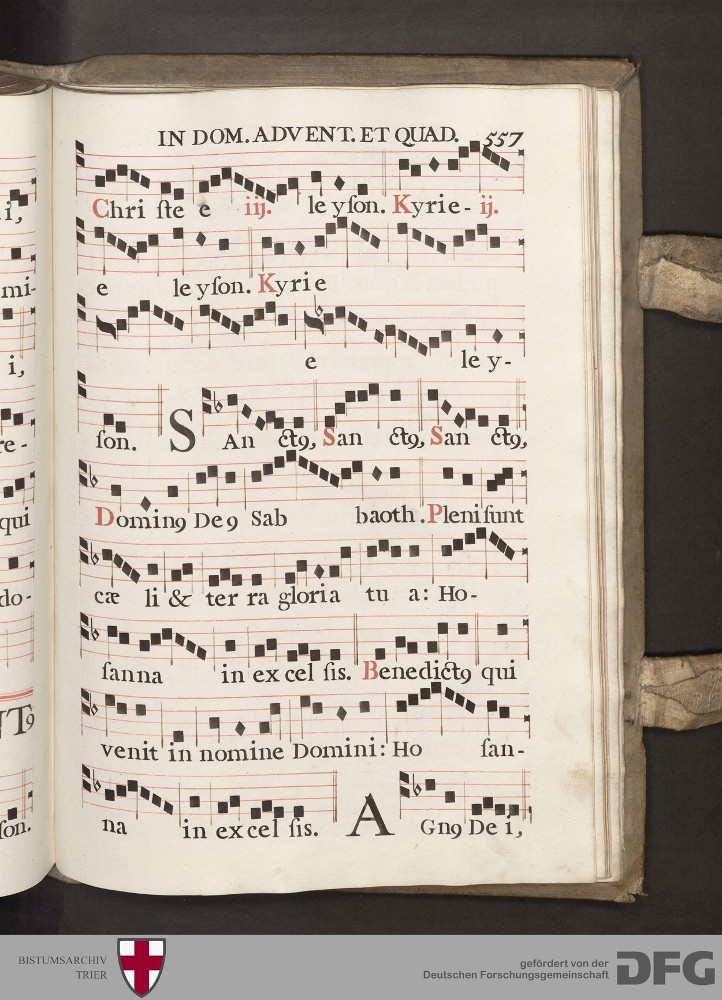 IN DOM. ADVENT. ET QUAD. 557
Chri ſte e iij. le yſon. Kyrie - ij.
e le yſon. Kyrie
e le y-
ſon. SAn ct9, San ct9, San ct9,
Domin9 De9 Sab baoth. Pleni ſunt
cæ li & ter ra gloria tu a: Ho-
ſanna in ex cel ſis. Benedict9 qui
venit in nomine Domini: Ho ſan-
na in excel ſis. AGn9 De i,
i,
mi-
i,
re-
qui
do-
ſon.
BISTUMSARCHIV
TRIER
gefördert von der
Deutschen Forschungsgemeinschaft
DFG